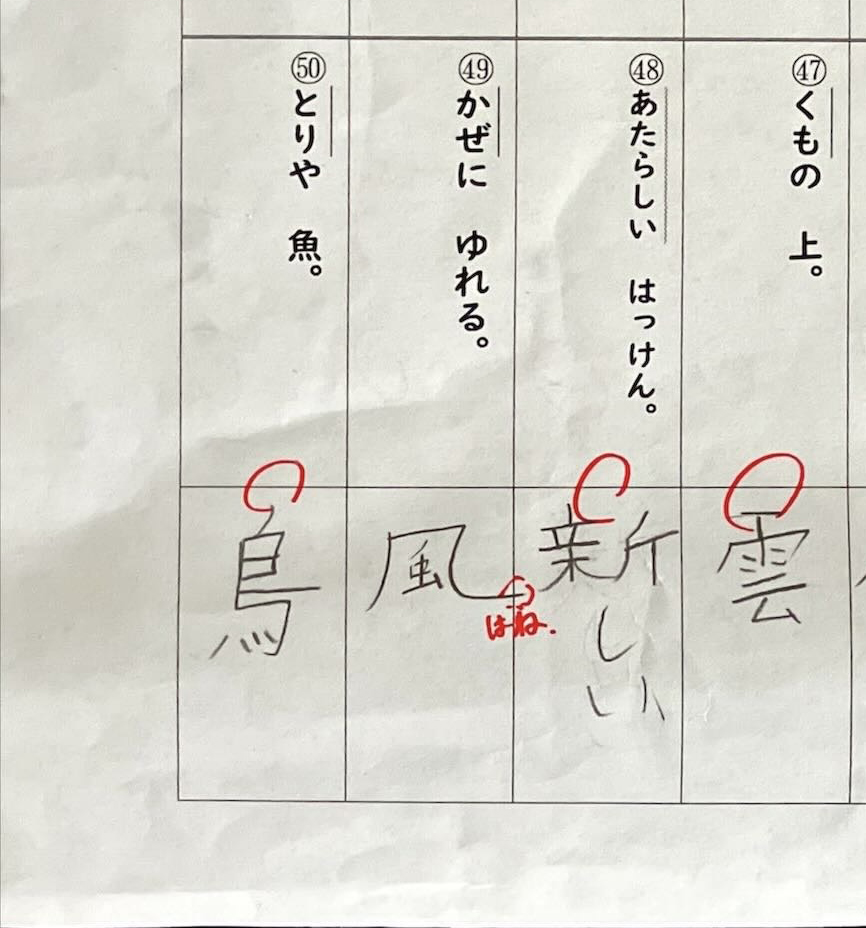 ㊼くもの　上。
雲
㊽あたらしい　はっけん。
新しい
㊾かぜに　ゆれる。
風
はね.
㊿とりや　魚。
鳥